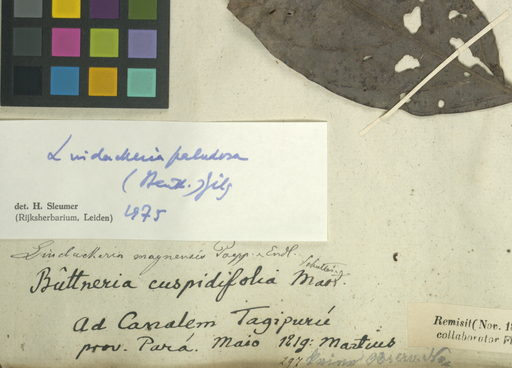 Lindackeria paludosa
(Benth.) Gilg
det. H. Sleumer
(Rijksherbarium, Leiden) 1975
Lindackeria maynensis Poepp. & Endl.
Büttneria cuspidifolia Mart.
Ad Canalem Tagipurú
prov. Pará. Maio 1819: Martius
297
Remisit (Nov. 18
collaborator Fl